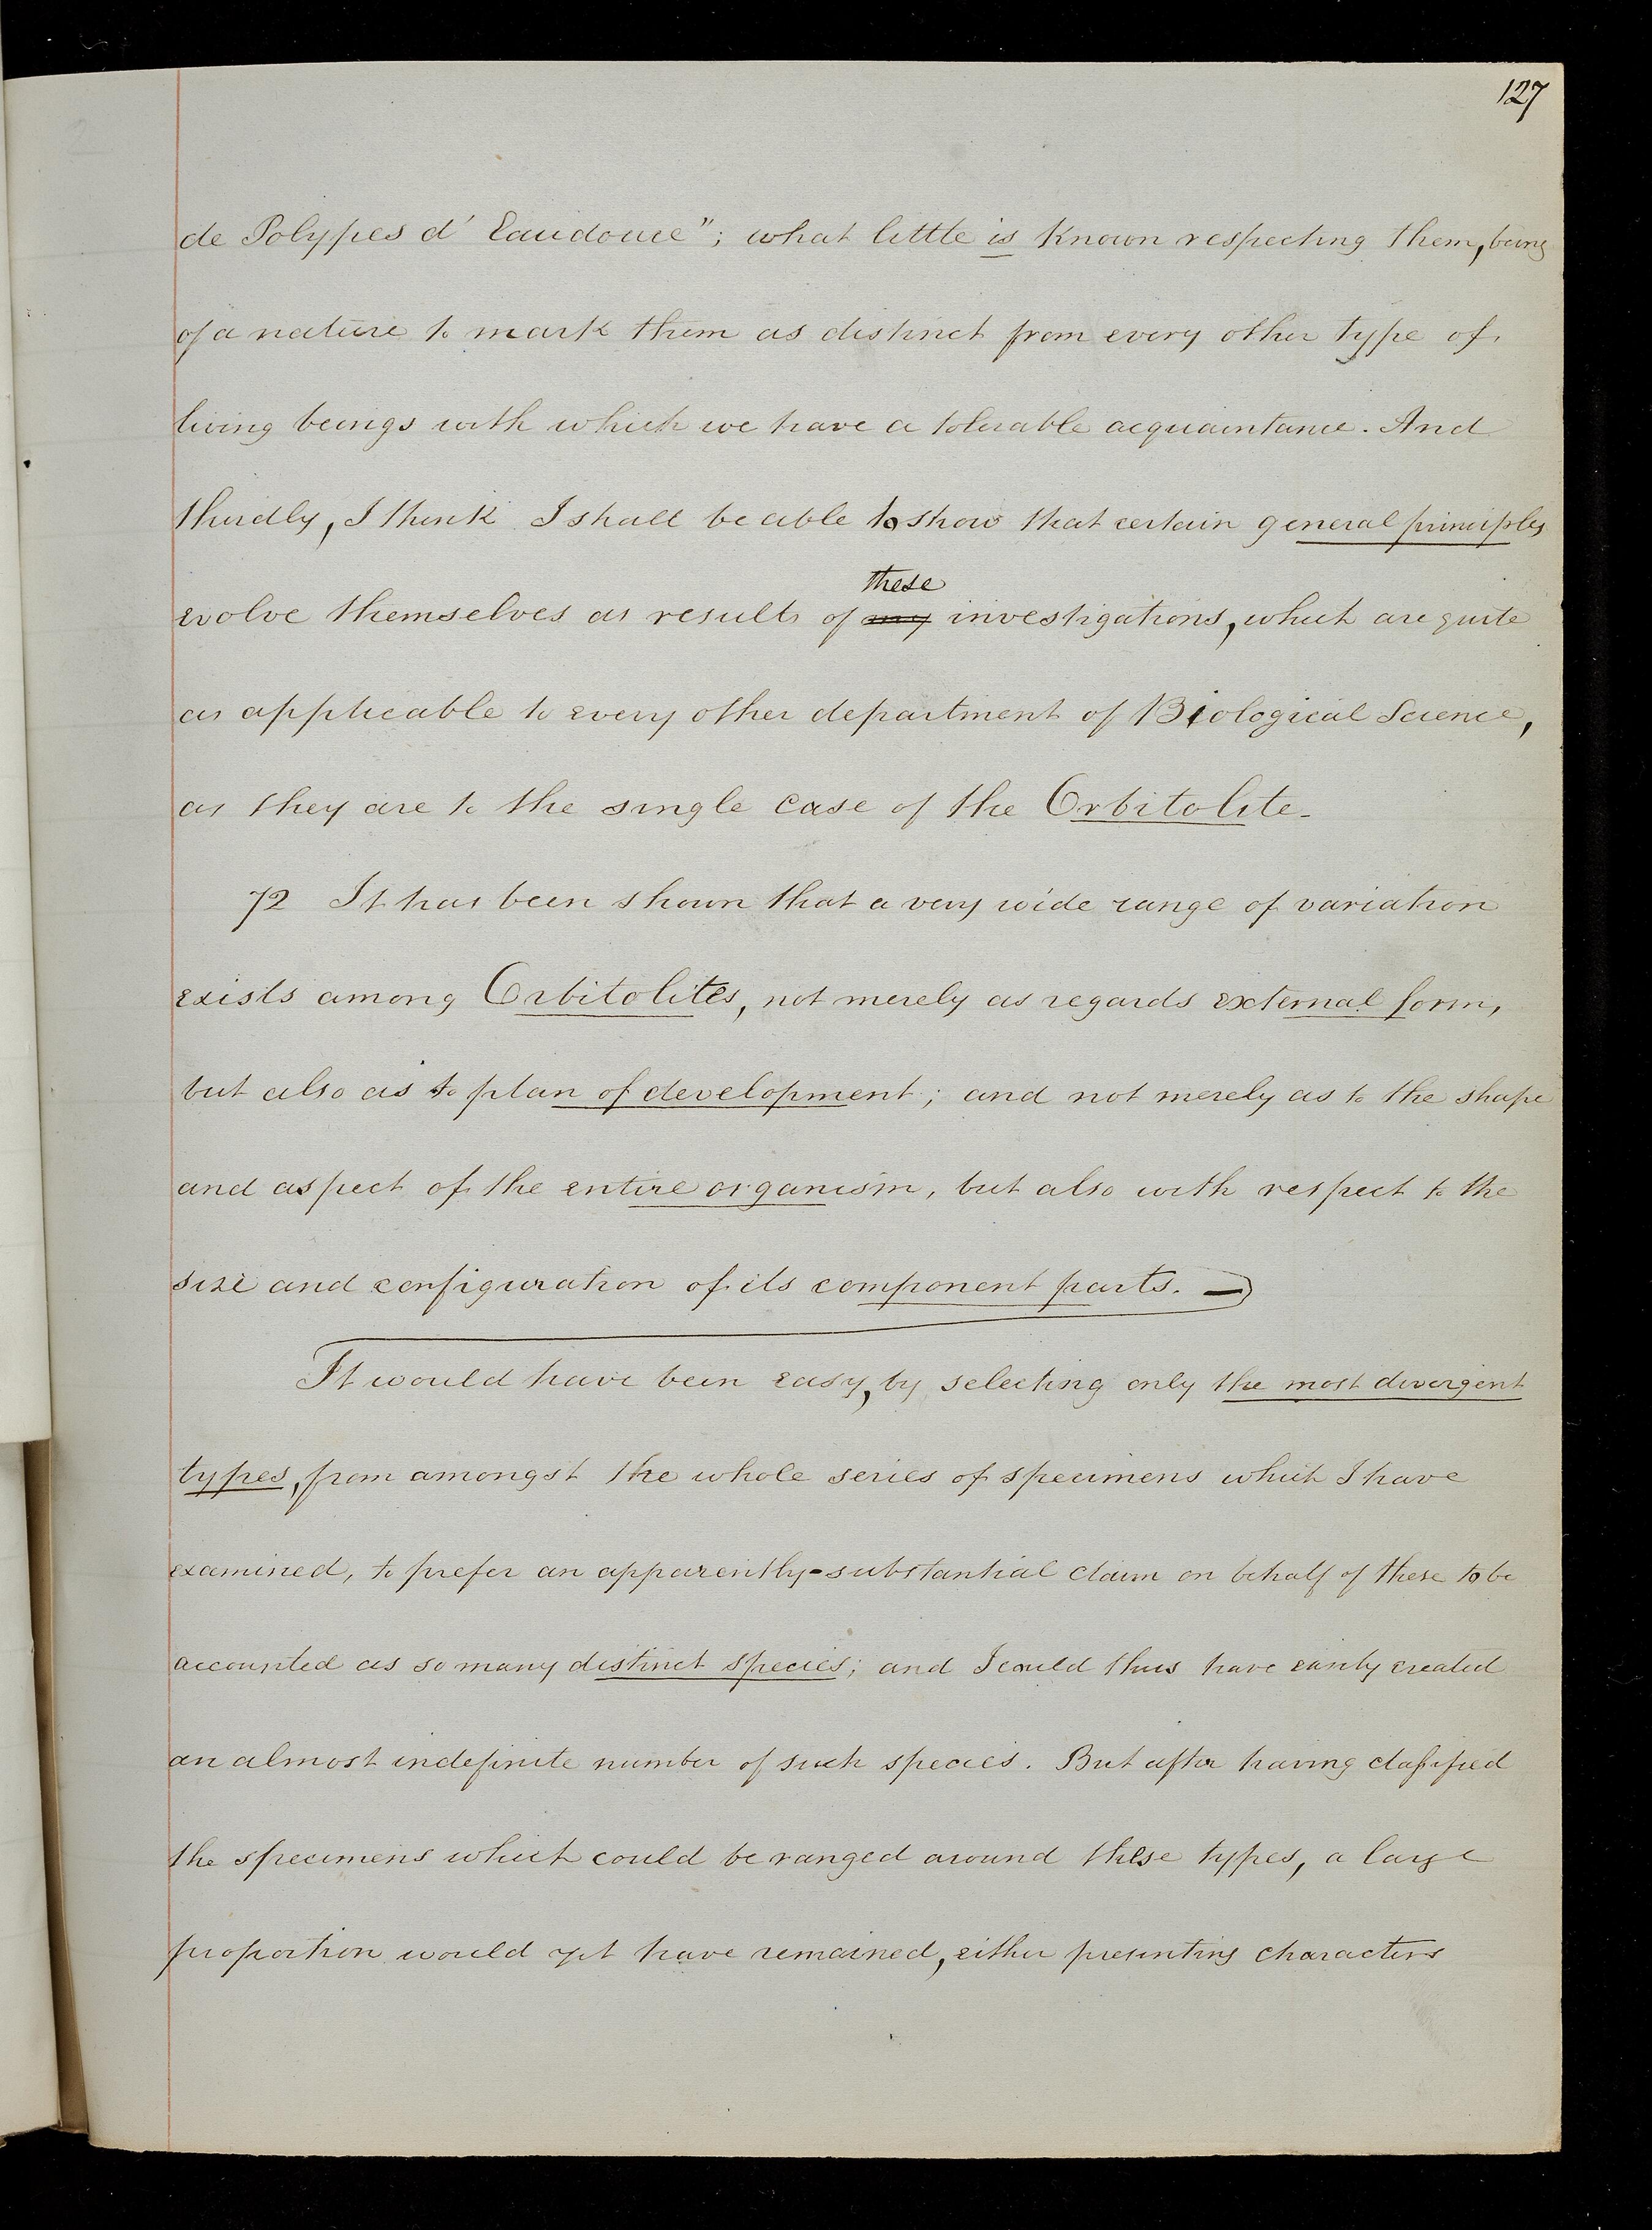 127
de Polypes d' Eaudouce"; what little is known respecting them, being
of a nature to mark them as distinct from every other type of
living beings with which we have a tolerable acquaintance. And
thirdly, I think I shall be able to show that certain general principles
these
evolve themselves as results of any investigations, which are quite
as applicable to every other department of Biological Science,
as they are to the single case of the Orbitolite.
72 It has been shown that a very wide range of variation
exists among Orbitolites, not merely as regards external form,
but also as to plan of development; and not merely as to the shape
and aspect of the entire organism, but also with respect to the
size and configuration of its component parts. —
It would have been easy, by selecting only the most divergent
types, from amongst the whole series of specimens which I have
examined, to prefer an apparently-substantial claim on behalf of these to be
accounted as so many distinct species; and I could thus have easily created
an almost indefinite number of such species. But after having classified
the specimens which could be ranged around these types, a large
proportion would yet have remained, either presenting characters